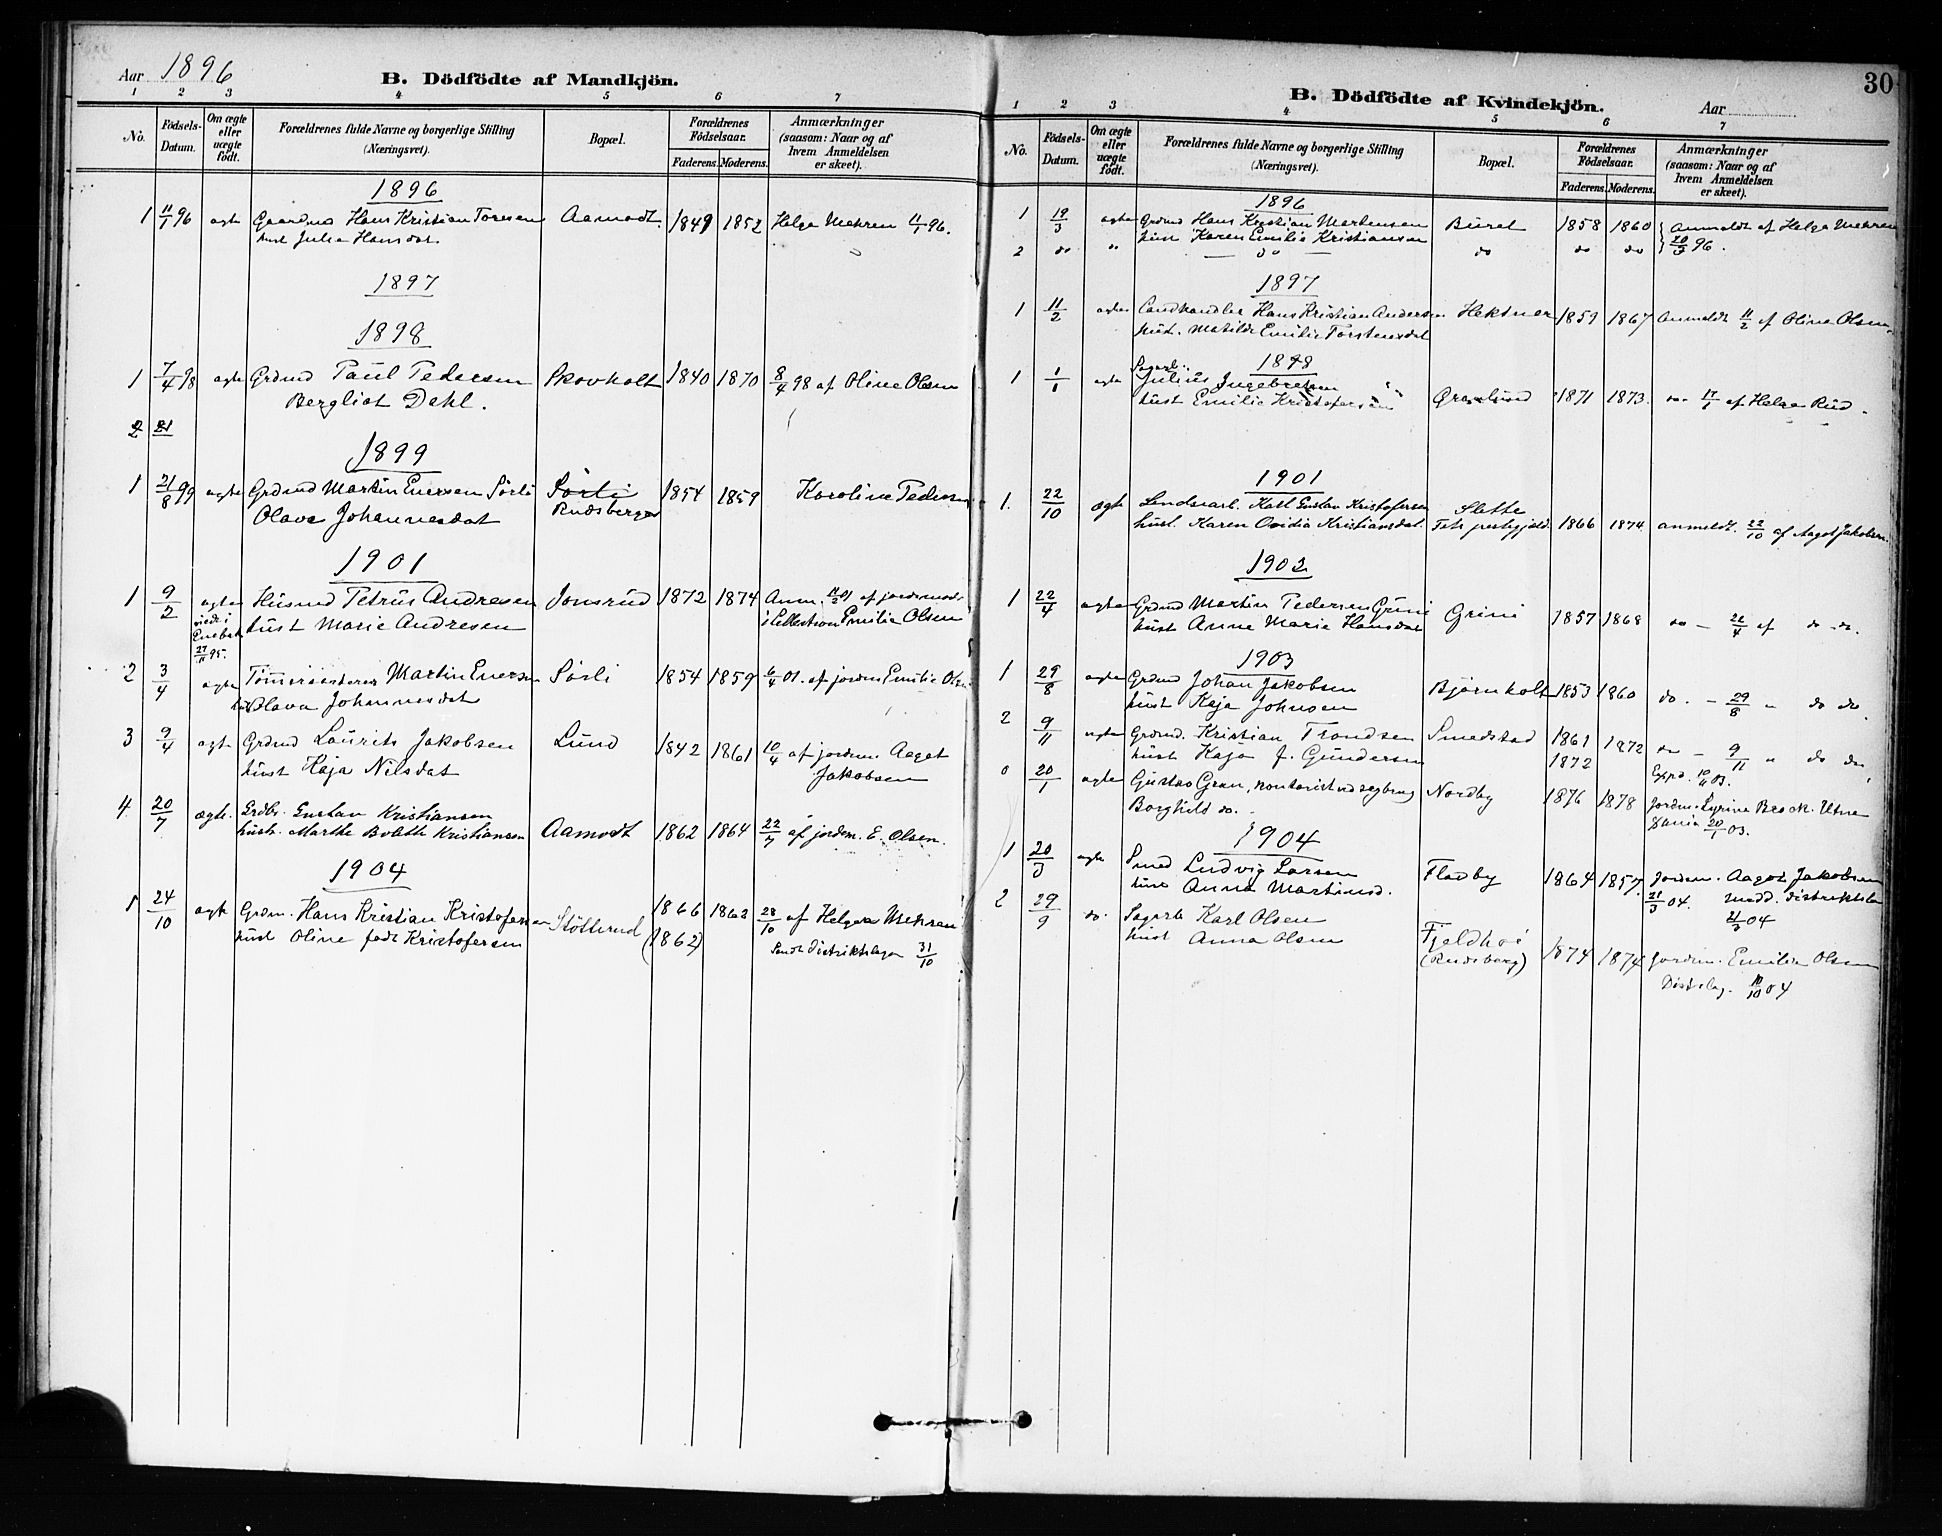 Aar 1896
B. Dödfödte af Mandkjön.
1 2 3 4 5 6 7
No. Födsels-Datum. Om ægte eller uægte födt. Forældrenes fulde Navne og borgerlige Stilling (Næringsvei). Bopæl. Forældrenes Födselsaar. Faderens. Moderens. Anmærkninger (saasom: Naar og af hvem Anmeldelsen er skeet).
1896
1 11/7 96 ægte Gaardmd Hans Kristian Toresen Aamodt 1849 1852 Helga Mehren 11/7 96.
hust Julia Hansdat
1897
1898
1 7/4 98 ægte Grdmd Paul Pedersen Skovholt 1840 1870 8/4 98 af Oline Olsen
Bergliot Dehl.
2 21
1899
1 21/8 99 ægte Grdmd Martin Evensen Sörli Sörli 1854 1859 Karoline Pedersen
Olava Johannesdat Rudsberget
1901
1 9/2 ægte Husmd Petrus Andresen Jonsrud 1872 1874 Anm. 11/2 01 af jordmod.
viede i Enebak 27/11 95. hust Marie Andresen Emilie Olsen
2 3/4 ægte Martin Evensen Sörli 1854 1859 6/4 01. af jordm Emilie Olsen
Olava Johannesdat
3 9/4 ægte Grdmd Laurits Jakobsen Lund 1842 1861 10/4 af jordm. Aagot
hust Kaja Nilsdat Jakobsen
4. 20/7 ægte. Grdbr. Gustav Kristiansen
hustr. Marthe Bolette Kristiansen Aamodt 1862 1864 22/7 af jordm. E. Olsen.
1904
1 24/10 ægte Grdm. Hans Kristian Kristofersen Stötterud 1866 1862 28/10 af Helga Mehren
hust Oline født Kristofersen (1862) Sendt distriktslægen 31/10
30
B. Dödfödte af Kvindekjön.
Aar
1 2 3 4 5 6 7
No. Födsels-Datum. Om ægte eller uægte födt. Forældrenes fulde Navne og borgerlige Stilling (Næringsvei). Bopæl. Forældrenes Födselsaar. Faderens. Moderens. Anmærkninger (saasom: Naar og af hvem Anmeldelsen er skeet).
1896
1 19/3 ægte Grdmd Hans Kristian Martensen Buret 1858 1860 Anmeldt af Helga Mehren
hust Karen Emilie Kristiansen
2 do " — do — do do do 20/3 96.
1897
1 11/2 ægte Landhandler Hans Kristian Andersen Hektner 1859 1867 Anmeldt 11/2 af Oline Olsen
hust. Matilde Emilie Torstensdat
1898
1 1/1 ægte Sagarb. Julius Ingebretsen
hust Emilie Kristofersen Granlund 1871 1873. do 17/1 af Helga Rud.
1901
1. 22/10 ægte Karl Gustav Kristofersen Slette
hust. Karen Ovidia Kristiansdat. Fets prestegjeld. 1866 1874. anmeldt. 22/10 af Aagot Jakobsen.
1902
1 22/4 ægte Grdmd Martin Pedersen Grini Grini 1857 1868 do — 22/4 af do do.
hust Anne Marie Hansdat
1903
1 29/8 ægte Grdmd Johan Jakobsen Björnholt 1853 1860 do. — 29/8 " do do
hust Kaja Johnsen
2 9/11 ægte Grdmd. Kristian Trondsen Smedstad 1861 1872 do — 9/11 " do do
hust Kaja f. Gundersen 1872 Expd. 10/11 03.
0 20/1 ægte Gustav Gran, Nordby 1876 1878 Jordm. Utne
Borghild do. 20/1 03.
1904
1 20/3 ægte Smed Ludvig Larsen Fladby 1864 1857. Jordm. Aagot Jakobsen
hust Anna Martinsd. 21/3 04. medd. distriktslæ 21/3 04
2 29/9 do. Sagarb Karl Olsen
hust Anna Olsen Fjeldhoi (Rudsberg) 1874 1874 Jordm. Emilie Olsen
Distrlæg. 11/10 04